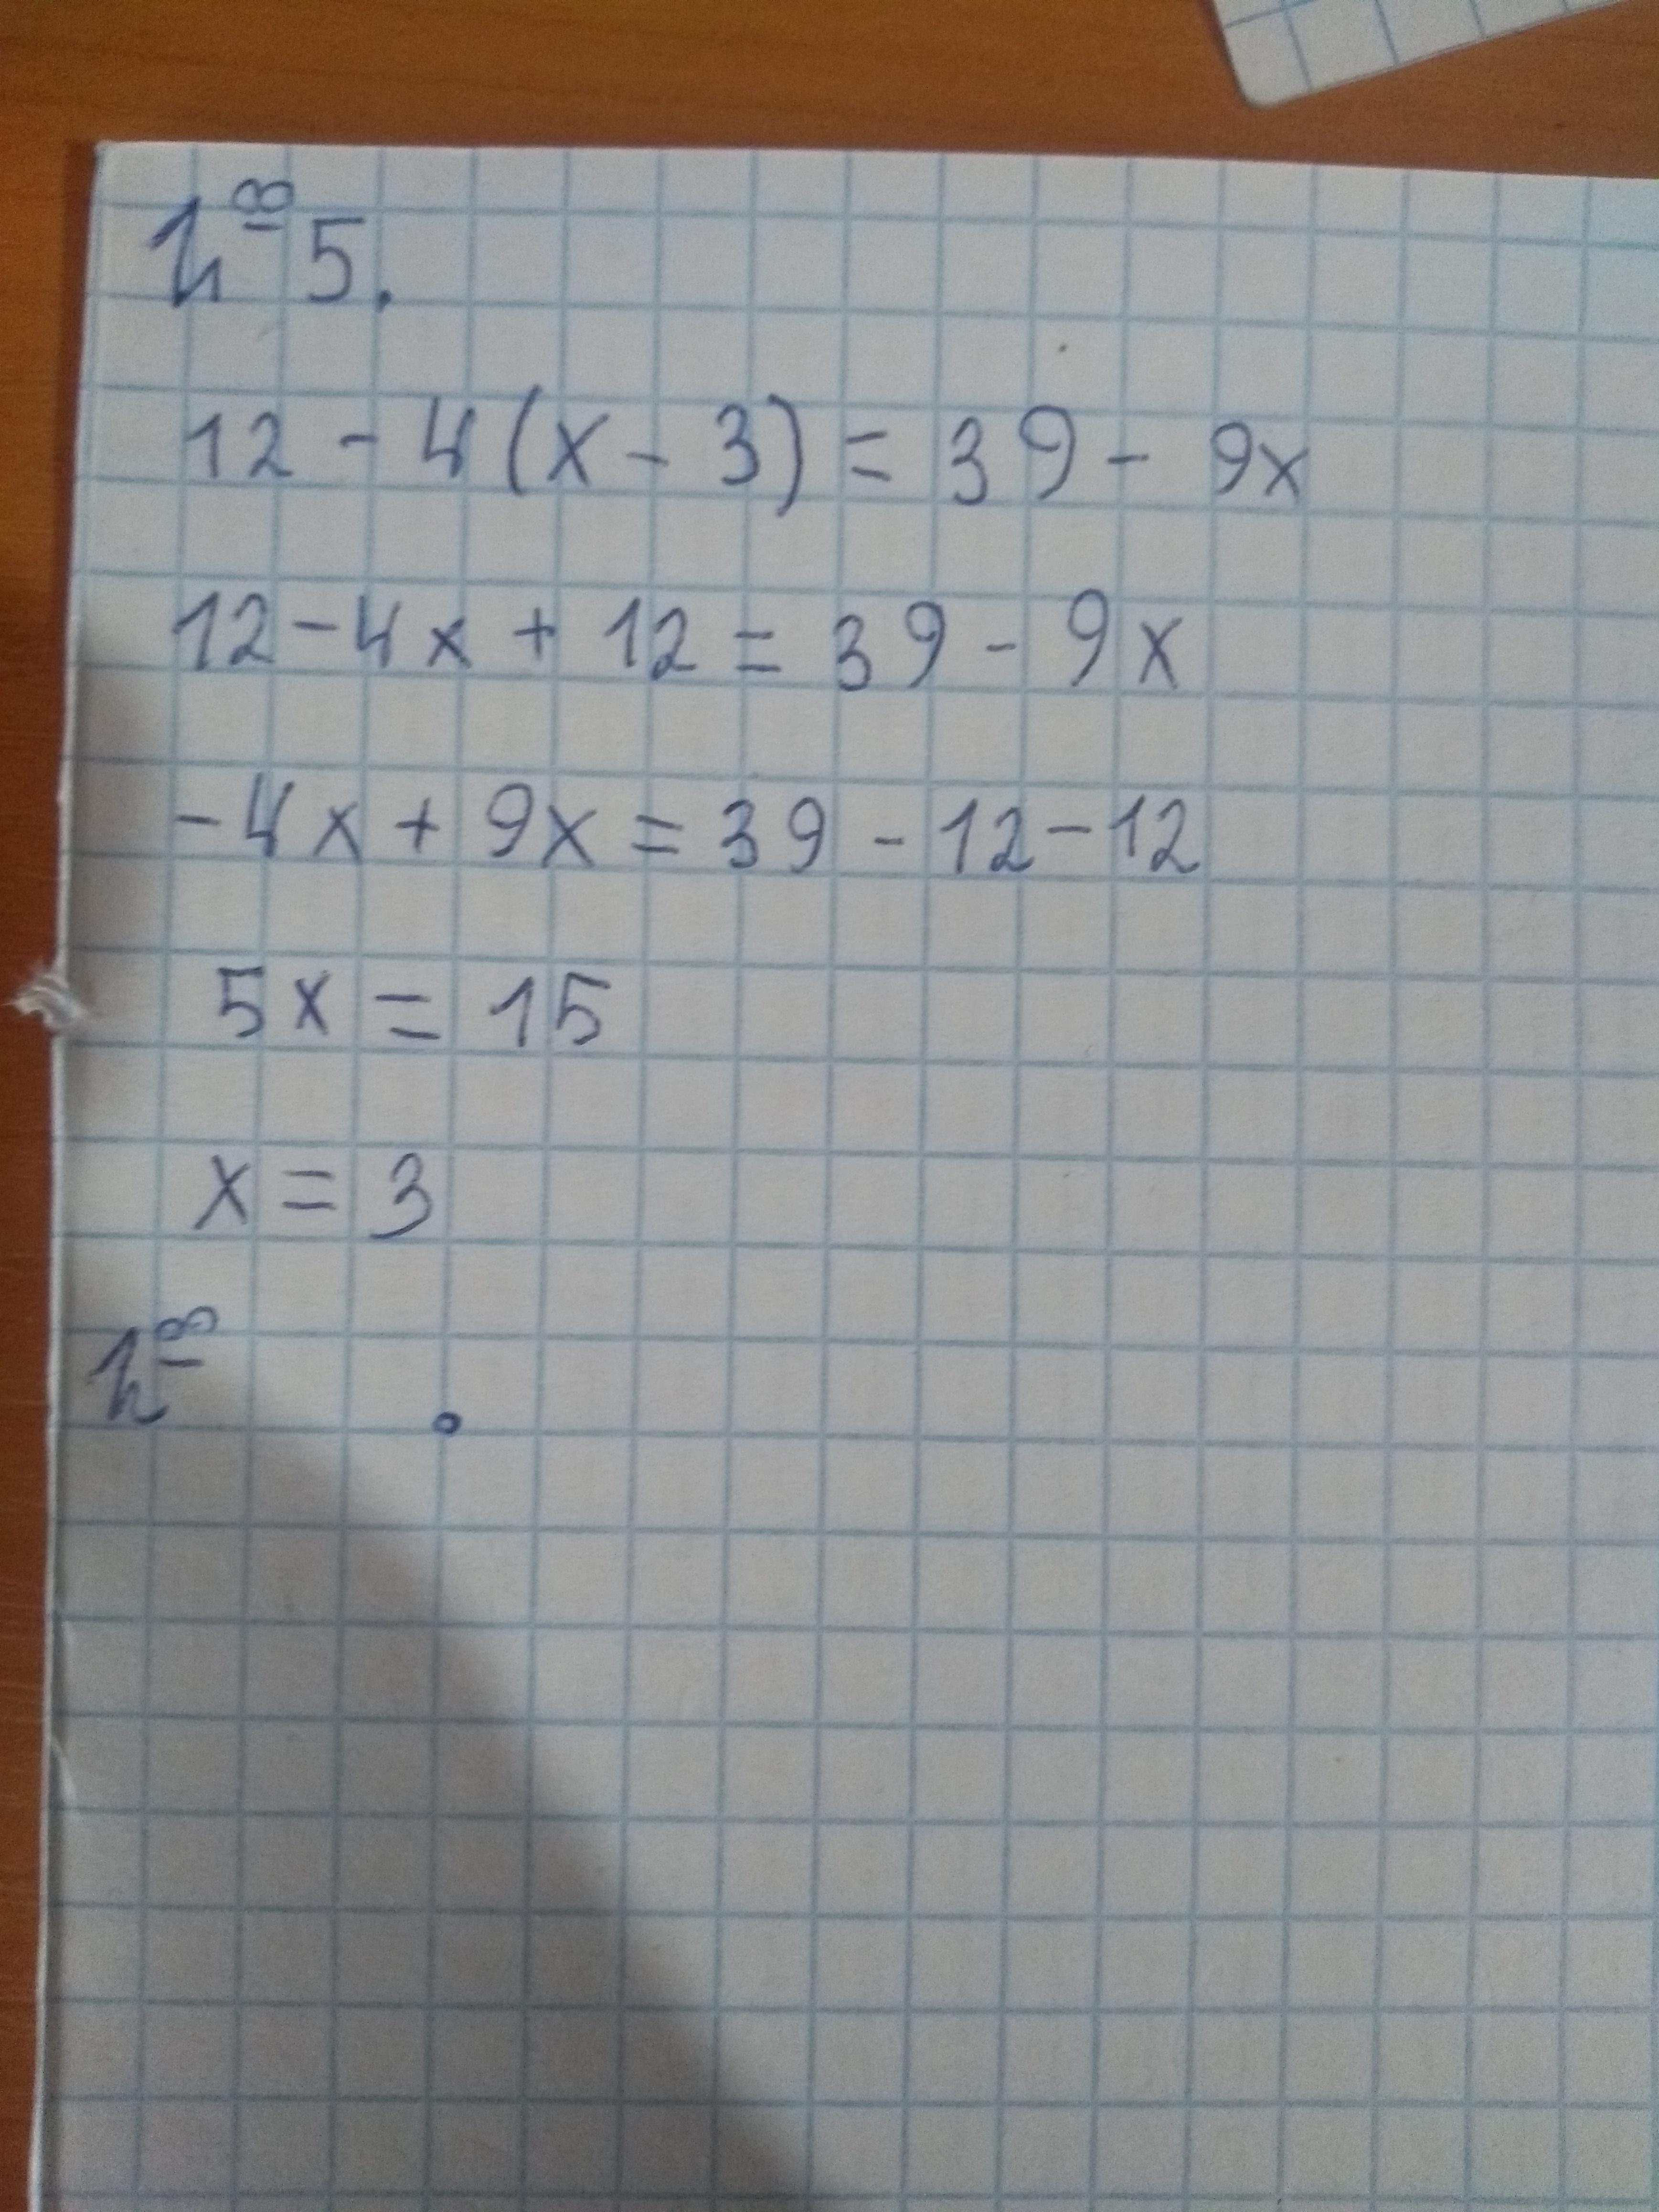 № 5.
12 - 4(x - 3) = 39 - 9x
12 - 4x + 12 = 39 - 9x
-4x + 9x = 39 - 12 - 12
5x = 15
x = 3
№ .